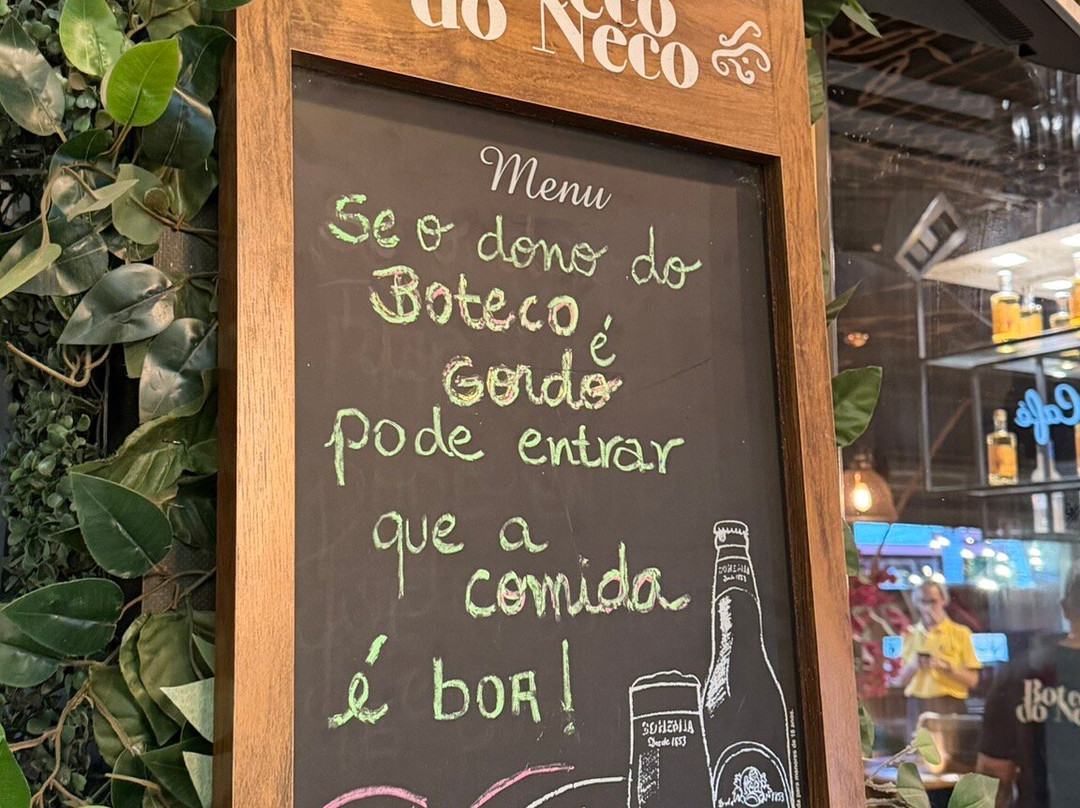 do Neco
Menu
Se o dono do
Boteco é
Gordo
pode entrar
que a
comida
é boa!
BOHEMIA
Desde 1853
BOHEMIA
Desde 1853
Café
Boteco
do Ne
menores de 18 anos.